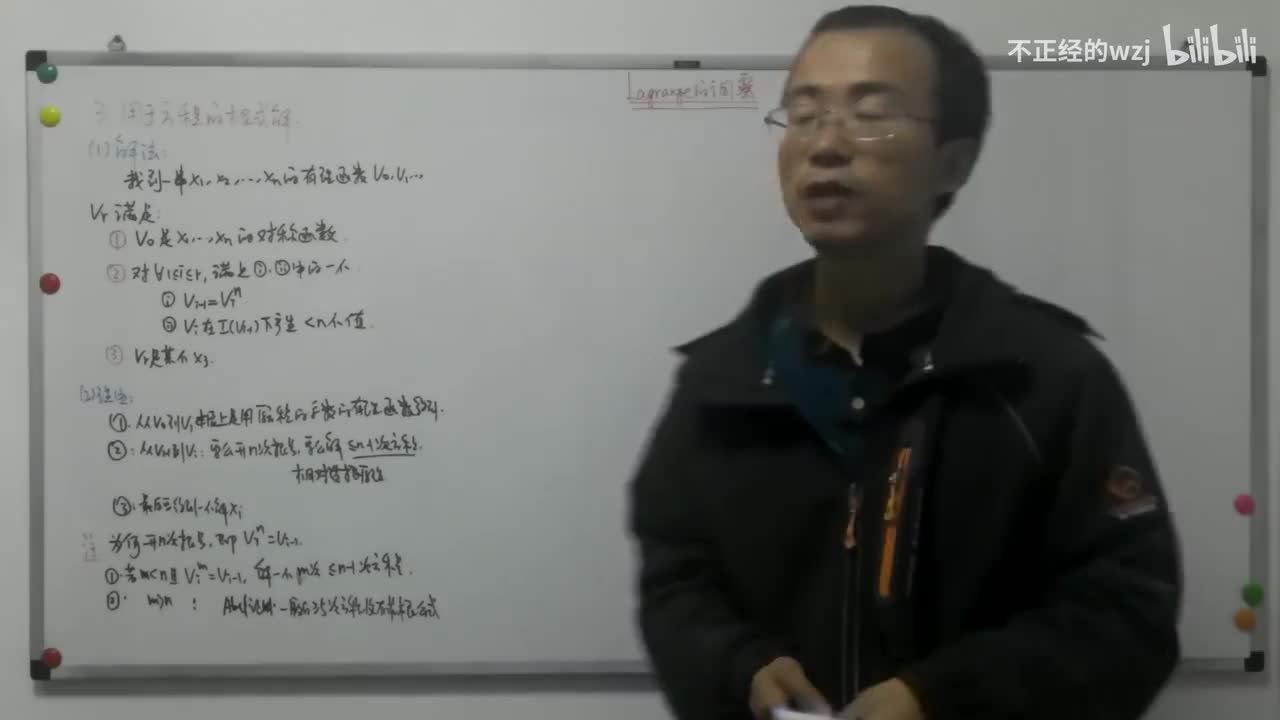 不正经的wzj bilibili
Lagrange的
3. 用于方程的根式解.
(1) 解法:
找到一串x₁,x₂,…,xₙ的有理函数V₀,V₁…
Vᵣ满足:
① V₀是x₁…xₙ的对称函数.
② 对∀1≤i≤r, 满足①.②中的一个
① Vᵢ₋₁=Vᵢⁿ
② Vᵢ在I(Vᵢ₋₁)下产生<n个值.
③ Vᵣ是某个xⱼ.
(2)
①. 从V₀到V₁ 上是用 的有理函数
②: 从Vᵢ₋₁到Vᵢ: 要么开n次根号, 要么解≤n-1次方程.
③: 最后得到一个解xᵢ
注 为何开n次根号, 即Vᵢⁿ=Vᵢ₋₁.
①. 若m<n且Vᵢᵐ=Vᵢ₋₁, 解一个m次≤n-1次方程.
②. m>n : Abel证明: 一般的≥5次方程没有求根公式